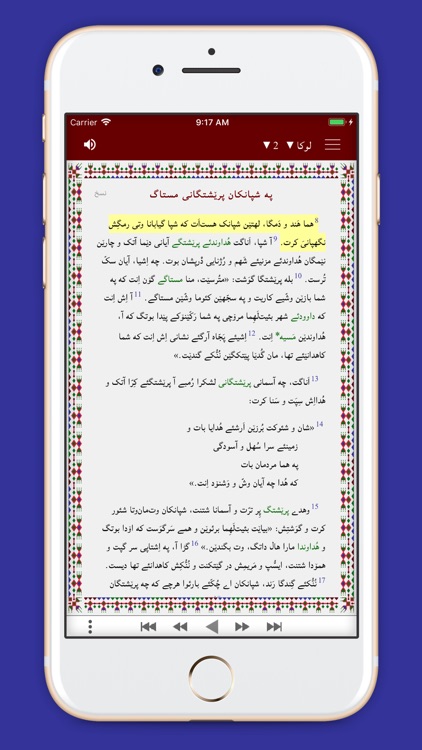 Carrier 9:17 AM
لوکا ▼ 2 ▼
نسخ
په شپانکان پرێشتگانی مستاگ
8 هما هَند و دَمگا، لهتێن شپانک هست‌اَت که شپا گیابانا وتی رمگِش
نگهپانیَ کرت. 9 آ شپا، اَناگت هُداوندئے پرێشتگے آیانی دێما آتک و چارێن
نێمگان هُداوندئے مزنیئے شَهم و رُژنایی دْرپشان بوت. چه اِشیا، آیان سکّ
تُرست. 10 بله پرێشتگا گوَشت: «متُرسێت، منا مستاگے گۆن اِنت که په
شما بازێن وشّیے کاریت و په سجّهێن کئوما وشّێن مستاگے. 11 آ اِش اِنت
که داوودئے شهر بئیت‌لَهما مرۆچی په شما رَکّێنۆکے پێدا بوتگ که آ،
هُداوندێن مَسیه* اِنت. 12 اِشیئے پَجّاه آرگئے نشانی اِش اِنت که شما
کاهدانێئے تها، مان گُدێا پێتکگێن نُنُّکے گندێت.»
13 اَناگت، چه آسمانی پرێشتگانی لشکرا رُمبے آ پرێشتگئے کِرّا آتک و
هُدااِش سِپَت و سَنا کرت:
14 «شان و شئوکت بُرزێن اَرشئے هُدایا بات و
زمینئے سرا سُهل و آسودگی
په هما مردمان بات
که هُدا چه آیان وشّ و وَشنۆد اِنت.»
15 وهدے پرێشتگ پِر ترّت و آسمانا شتنت، شپانکان وت‌مان‌وتا شئور
کرت و گوَشتِش: «بیاێت بئیت‌لَهما برئوێن و همے سَرگوَست که اۆدا بوتگ
و هُداوندا مارا هال داتگ، وت بگندێن.» 16 گڑا آ، په اِشتاپی سر گپت و
همۆدا شتنت، ایسُّپ و مَریمِش در گێتکنت و نُنُّکِش کاهدانئے تها دیست.
17 نُنُّکئے گِندگا رَند، شپانکان اے چُکّئے بارئوا هرچے که چه پرێشتگان